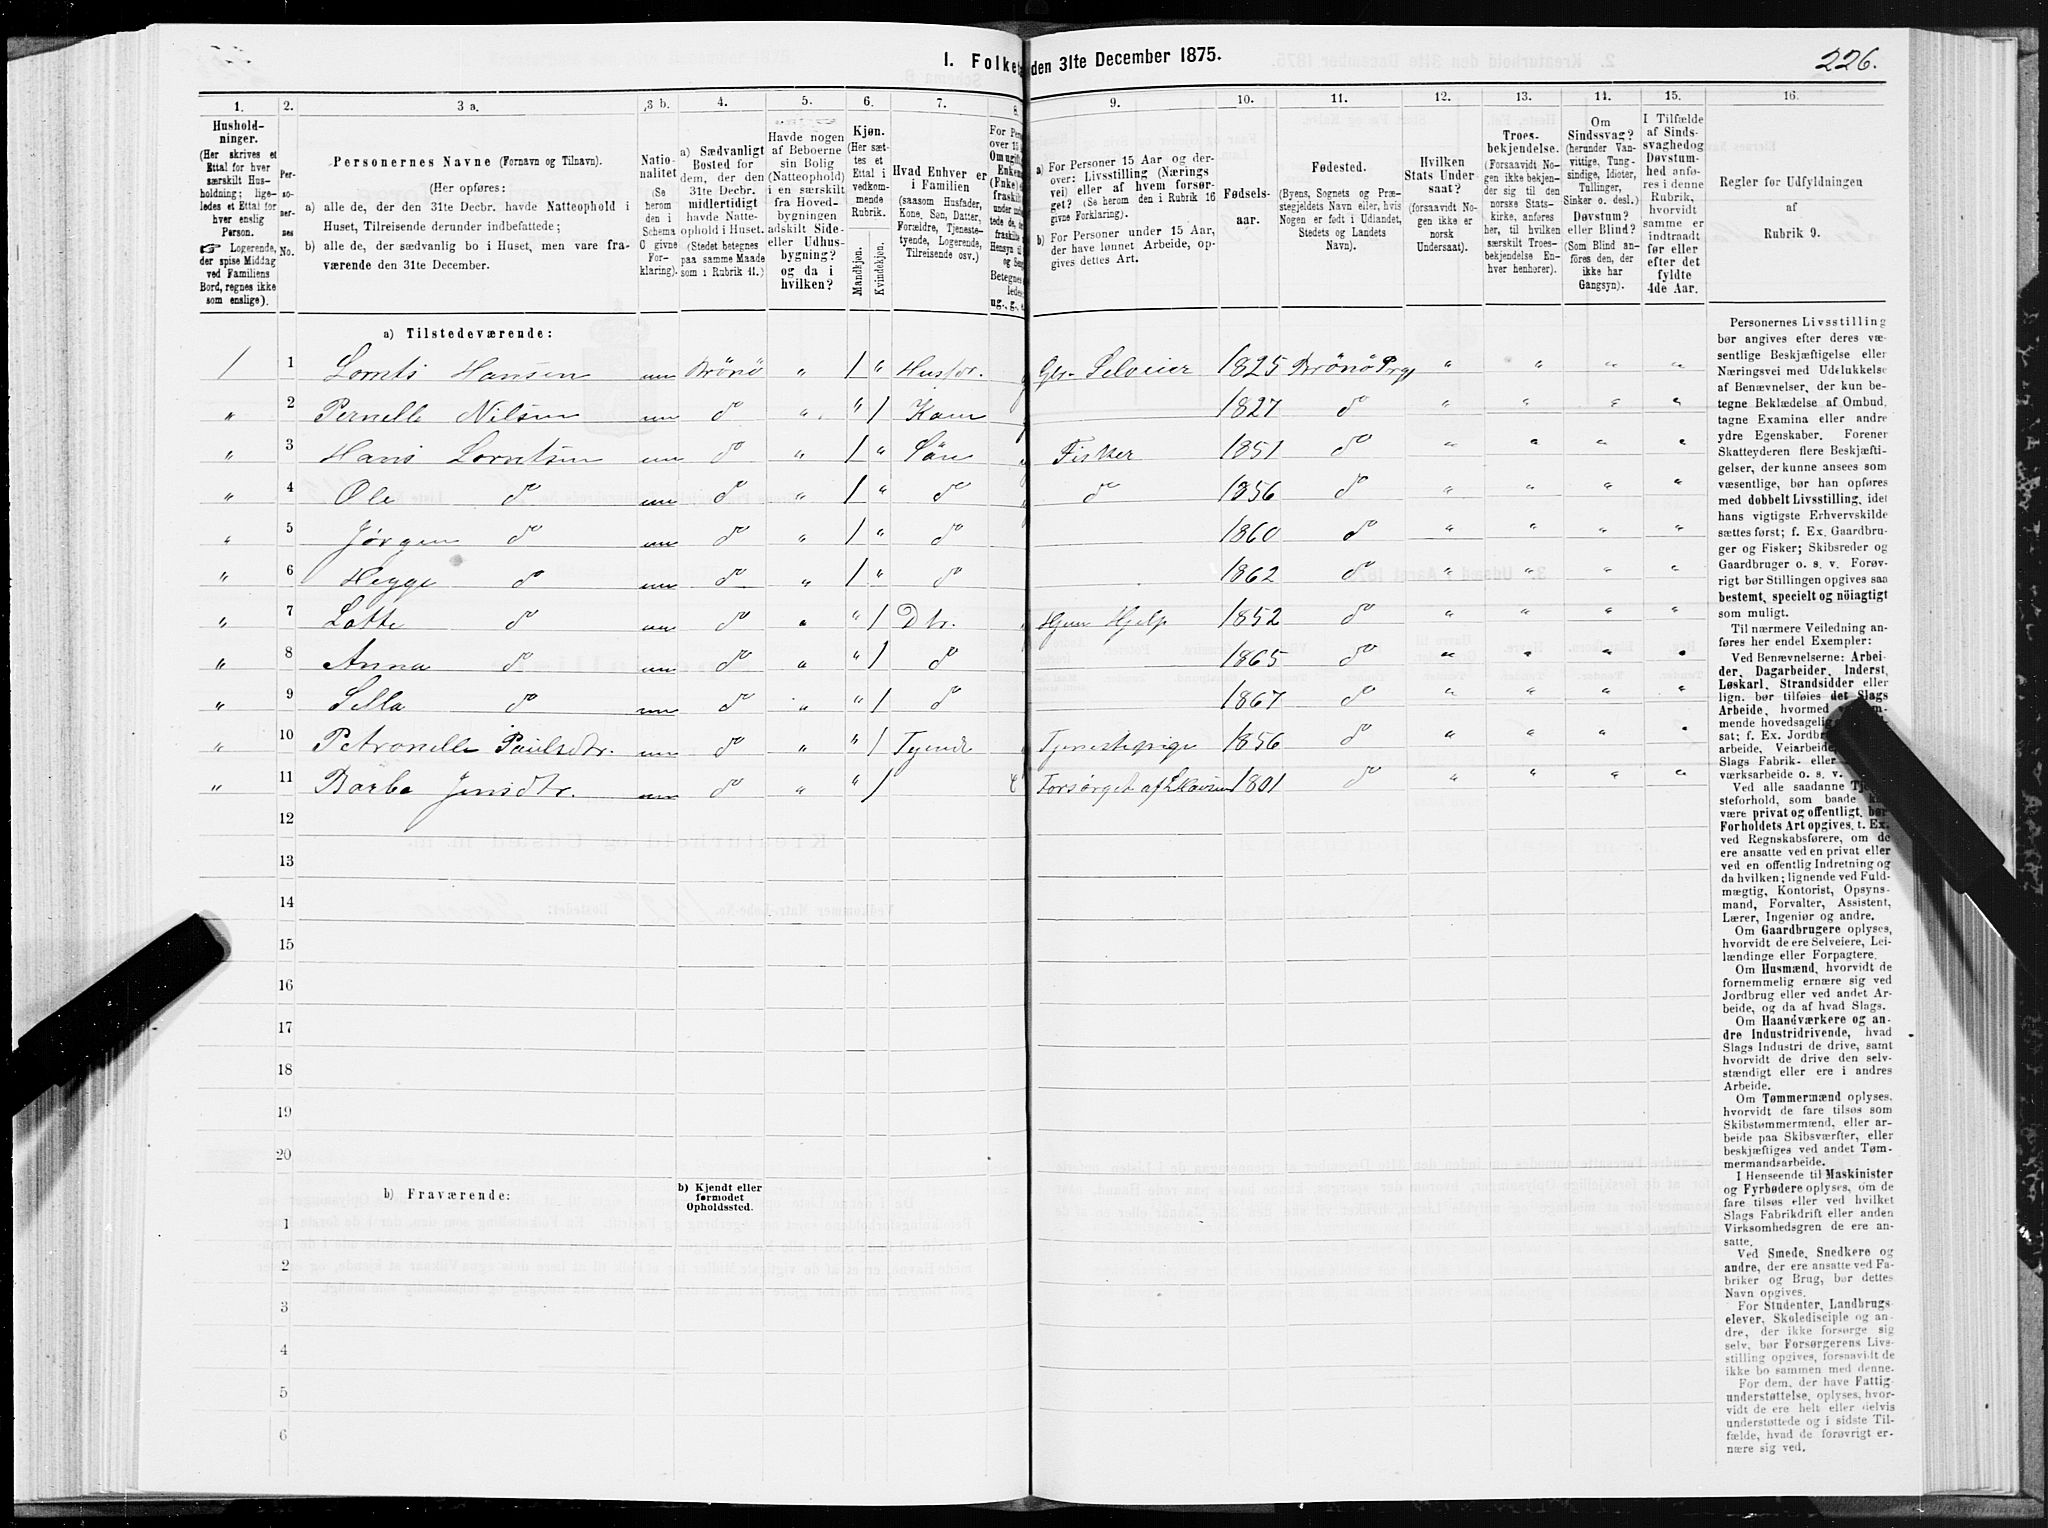 1. Folket
den 31te December 1875.
226.
1. 2. 3 a. 3 b. 4. 5. 6. 7. 8. 9. 10. 11. 12. 13. 14. 15. 16.
Hushold-
ninger.
(Her skrives et
Ettal for hver
særskilt Hus-
holdning; lige-
ledes et Ettal for
hver enslig
Person.
☞ Logerende,
der spise Middag
ved Familiens
Bord, regnes ikke
som enslige).
Per-
so-
ner-
nes
No.
Personernes Navne (Fornavn og Tilnavn).
(Her opføres:
a) alle de, der den 31te Decbr. havde Natteophold i
Huset, Tilreisende derunder indbefattede;
b) alle de, der sædvanlig bo i Huset, men vare fra-
værende den 31te December.
Natio-
nalitet
(Se
herom
den i
Schema
C givne
For-
klaring).
a) Sædvanligt
Bosted for
dem, der den
31te Decbr.
midlertidigt
havde Natte-
ophold i Huset.
(Stedet betegnes
paa samme Maade
som i Rubrik 11.)
Havde nogen
af Beboerne
sin Bolig
(Natteophold)
i en særskilt
fra Hoved-
bygningen
adskilt Side-
eller Udhus-
bygning?
og da i
hvilken?
Kjøn.
(Her sæt-
tes et
Ettal i
vedkom-
mende
Rubrik.
Mandkjøn.
Kvindekjøn.
Hvad Enhver er
i Familien
(saasom Husfader,
Kone, Søn, Datter,
Forældre, Tjeneste-
tyende, Logerende,
Tilreisende osv.)
a) For Personer 15 Aar og der-
over: Livsstilling (Nærings
vei) eller af hvem forsør-
get? (Se herom i Rubrik 16
givne Forklaring).
b) For Personer under 15 Aar,
der have lønnet Arbeide, op-
gives dettes Art.
Fødsels-
aar.
Fødested.
(Byens, Sognets og Præ-
stegjeldets Navn eller, hvis
Nogen er født i Udlandet,
Stedets og Landets
Navn).
Hvilken
Stats Under-
saat?
(forsaavidt No-
gen ikke er
norsk
Undersaat).
Troes-
bekjendelse.
(Forsaavidt No-
gen ikke bekjen-
der sig til den
norske Stats-
kirke, anføres
her, til hvilken
særskilt Troes-
bekjendelse En-
hver henhører).
Om
Sindssvag?
(herunder Van-
vittige, Tung-
sindige, Idioter,
Tullinger,
Sinker o. desl.)
Døvstum?
eller Blind?
(Som Blind an-
føres den, der
ikke har
Gangsyn).
I Tilfælde
af Sinds-
svaghed og
Døvstum-
hed anfø-
res i denne
Rubrik,
hvorvidt
samme er
indtraadt
før eller
efter det
fyldte
4de Aar.
Regler for Udfyldningen
af
Rubrik 9.
a) Tilstedeværende:
1 1 Lornts Hansen nn Brönö " 1 " Husfdr. g Gbr. Selveier 1825 Brönö Prgj " " " "
" 2 Pernelle Nilsen nn do " " 1 Kone 1827 do " " " "
" 3 Hans Lorntsen nn do " 1 " Sön Fisker 1851 do " " " "
" 4 Ole do nn do " 1 " do do 1856 do " " " "
" 5 Jørgen do nn do " 1 " do 1860 do " " " "
" 6 Hegge do nn do " 1 " do 1862 do " " " "
" 7 Lotte do nn do " " 1 Dtr. Hjem Hjelp 1852 do " " " "
" 8 Anna do nn do " " 1 do 1865 do " " " "
" 9 Sella do nn do " " 1 do 1867 do " " " "
" 10 Petronelle Paulsdtr. nn do " " 1 Tyende Tjenestepige 1856 do " " " "
" 11 Barbe Jensdtr. nn do " " 1 e Forsørget af L Hansen 1801 do " " " "
12
13
14
15
16
17
18
19
20
b) Fraværende:
b) Kjendt eller
formodet
Opholdssted.
1
2
3
4
5
6
Personernes Livsstilling
bør angives efter deres væ-
sentlige Beskjæftigelse eller
Næringsvei med Udelukkelse
af Benævnelser, der kun be-
tegne Beklædelse af Ombud,
tagne Examina eller andre
ydre Egenskaber. Forener
Skatteyderen flere Beskjæfti-
gelser, der kunne ansees som
væsentlige, bør han opføres
med dobbelt Livsstilling, idet
hans vigtigste Erhvervskilde
sættes først; f. Ex. Gaardbru-
ger og Fisker; Skibsreder og
Gaardbruger o. s. v. Forøv-
rigt bør Stillingen opgives saa
bestemt, specielt og nöiagtigt
som muligt.
Til nærmere Veiledning an-
føres her endel Exempler:
Ved Benævnelserne: Arbei-
der, Dagarbeider, Inderst,
Løskarl, Strandsidder eller
lign. bør tilføies det Slags
Arbeide, hvormed
mende hovedsagelig
sat; f. Ex. Jordbr
arbeide, Veiarbeide,
Slags Fabrik- eller
værksarbeide o. s. v.
Ved alle saadanne Tje
steforhold, som baade
være privat og offentligt, bør
Forholdets Art opgives, t. Ex.
ved Regnskabsførere, om de
ere ansatte ved en privat eller
ved en offentlig Indretning og
da hvilken; lignende ved Fuld-
mægtig, Kontorist, Opsyns-
mand, Forvalter, Assistent,
Lærer, Ingeniør og andre.
Om Gaardbrugere oplyses,
hvorvidt de ere Selveiere, Lei-
lændinge eller Forpagtere.
Om Husmænd, hvorvidt de
fornemmelig ernære sig ved
Jordbrug eller ved andet Ar-
beide, og da af hvad Slags.
Om Haandværkere og an-
dre Industridrivende, hvad
Slags Industri de drive, samt
hvorvidt de drive den selv-
stændigt eller ere i andres
Arbeide.
Om Tømmermænd oplyses,
hvorvidt de fare tilsøs som
Skibstømmermænd, eller ar-
beide paa Skibsværfter, eller
beskjæftiges ved andet Tøm-
mermandsarbeide.
I Henseende til Maskinister
og Fyrbødere oplyses, om de
fare tilsøs eller ved hvilket
Slags Fabrikdrift eller anden
Virksomhedsgren de ere an-
satte.
Ved Smede, Snedkere og
andre, der ere ansatte ved Fa-
briker og Brug, bør dettes
Navn opgives.
For Studenter, Landbrugs-
elever, Skoledisciple og an-
dre, der ikke forsørge sig
selv, bør Forsørgerens Livs-
stilling opgives, forsaavidt de
ikke bo sammen med denne.
For dem, der have Fattig-
understøttelse, oplyses, hvor-
vidt de ere helt eller delvis
understøttede og i sidste Til-
fælde, hvad de forøvrigt er-
nære sig ved.